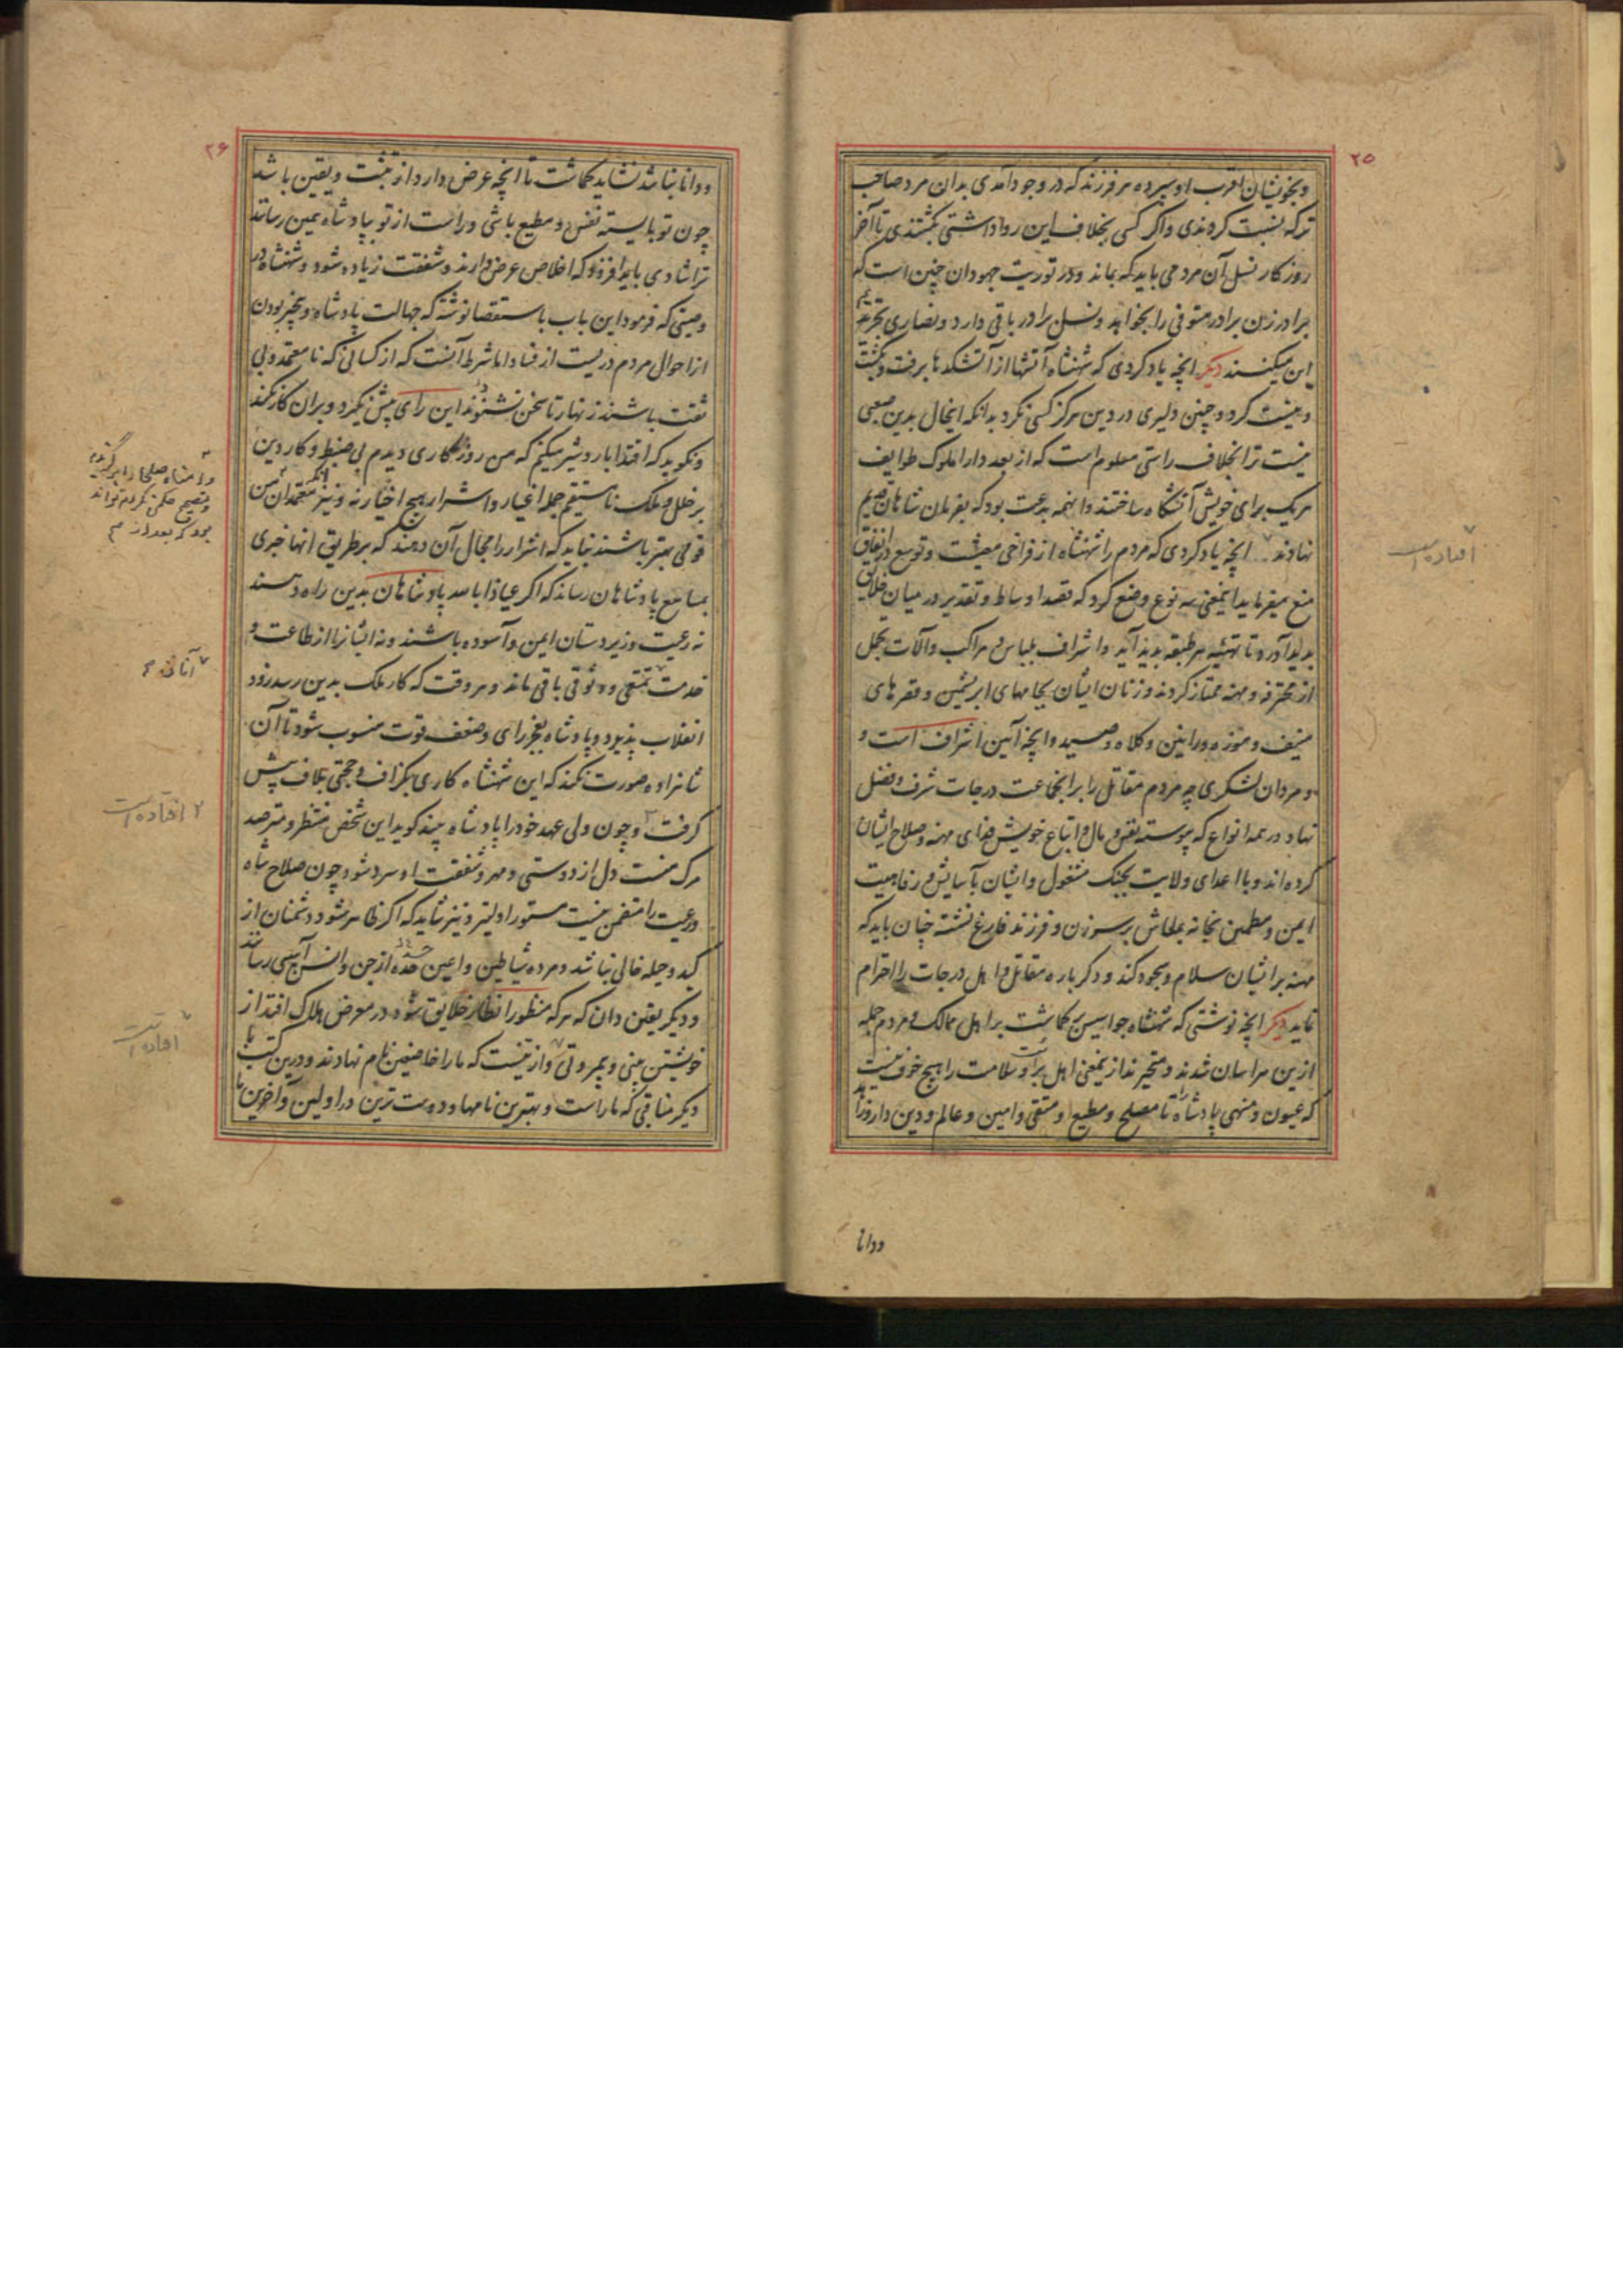 ۲۵
و بخویشان اقرب او سپرده هر فرزند که در وجود آمدی بدان مرد صاحب
ترکه نسبت کردندی و اگر کسی بخلاف این روا داشتی بکشتندی تا آخر
روزکار نسل آن مرد می باید که بماند و در توریت جهودان چنین است که
برادر زن برادر متوفی را بخواهد و نسل برادر باقی دارد و نصاری تحریم
این میکنند دیکر انچه یاد کردی که شهنشاه آتشها از آتشکدها برفت و بکشت
و نیست کرد و چنین دلیری در دین هرکز کسی نکرد بدانکه اینحال بدین صعبی
نیست ترا بخلاف راستی معلوم است که از بعد دارا ملوک طوایف
هریک برای خویش آتشگاه ساختند و اینهمه بدعت بود که بفرمان شاهان قدیم
نهادند انچه یاد کردی که مردم را شهنشاه از فراخی معیشت و توسع در انفاق
منع میفرماید اینمعنی سه نوع وضع کرد که قصد اوساط و تقدیر در میان خلایق
بدید آورد تا تهیئه هر طبقه بدید آید و اشراف بلباس و مراکب و آلات تجمل
از محترفه و مهنه ممتاز کردند و زنان ایشان بجامهای ابریشمین و قصرهای
منیف و موزه و رانین و کلاه و صید و انچه آیین اشراف است و
و مردان لشکری چه مردم مقاتل را بر انجماعت درجات شرف و فضل
نهاد در همه انواع که پیوسته نفس و مال و اتباع خویش فدای مهنه و صلاح ایشان
کرده اند و با اعدای ولایت بجنک مشغول و ایشان بآسایش و رفاهیت
ایمن و مطمئن بخانه بمعاش بر سر زن و فرزند فارغ نشسته چنان باید که
مهنه بر ایشان سلام و سجود کند و دکر باره مقاتل و اهل درجات را احترام
نماید دیکر انچه نوشتی که شهنشاه جواسیس بر کماشت بر اهل ممالک و مردم جمله
ازین هراسان شدند و متحیرند از ینمعنی اهل برائت و سلامت را هیچ خوف نیست
که عیون و منهی پادشاه را تا مصلح و مطیع و متقی و امین و عالم و دین دار و زاهد
ودانا
افتاده است
۲۶
و دانا نباشد نشاید کماشت تا انچه عرض دارد از تثبت و یقین باشد
چون تو بایسته نفس و مطیع باشی و راست از تو بپادشاه همین رسانند
ترا شادی باید افزود که اخلاص عرض دارند و شفقت زیاده شود و شهنشاه در
وصیتی که فرمود این باب باستقصا نوشته که جهالت پادشاه و بیخبر بودن
از احوال مردم دریست از فساد اما شرط آنست که از کسانی که نامعتمد و بی
ثقت باشند زنهار تا سخن نشنوند این رای پیش نکیرد و بران کار نکند
و نکوید که اقتدا باردشیر میکنم که من روزکاری دیدم بی ضبط و کار دین
بر خلل و ملک نا مستقیم جمله اغیار و اشرار هیچ اخیار نه و نیز معتمدان من
قومی بهتر باشند نباید که اشرار را مجال آن دهند که بر طریق انها خبری
بمسامع پادشاهان رساند که اکر عیاذا بالله پادشاهان بدین راه دهند
نه رعیت و زیردستان ایمن و آسوده باشند و نه ایشانرا از طاعت و
خدمت تمتعی و وثوقی باقی ماند و هر وقت که کار ملک بدین رسد زود
انقلاب پذیرد و پادشاه بعجز رای و ضعف قوت منسوب شود تا آن
شاهزاده صورت نکند که این شهنشاه کاری بکزاف و حجتی بلاف پیش
کرفت و چون ولی عهد خود را پادشاه بیند کوید این شخص منتظر و مترصد
مرک منست دل از دوستی و مهر و شفقت او سرد شود چون صلاح شاه
و رعیت را متضمن نیست مستور اولیتر و نیز شاید که اکر ظاهر شود دشمنان از
کید و حیله خالی نباشد و مرده شیاطین و اعین حسده از جن و انس آسیبی رسانند
و دیکر یقین دان که هرکه منظور انظار خلایق شود در معرض هلاک افتد از
خویشتن بینی و بیمروتی و از ینست که ما را خاضعین نام نهادند و درین کتب با
دیکر مناقبی که ماراست و بهترین نامها و دوست ترین در اولین و آخرین ما
افتاده است
افتاده است